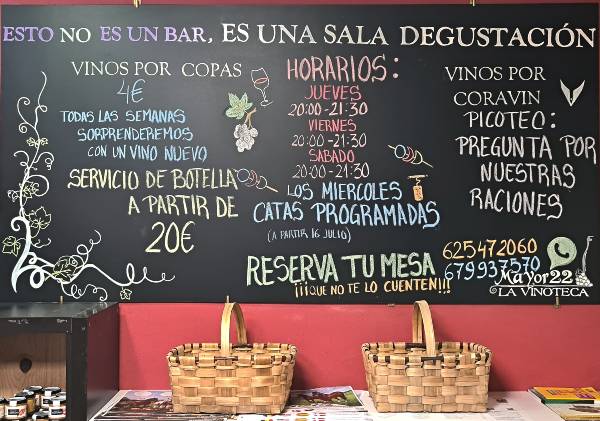 ESTO NO ES UN BAR, ES UNA SALA DEGUSTACIÓN
VINOS POR COPAS
4€
TODAS LAS SEMANAS
SORPRENDEREMOS
CON UN VINO NUEVO
SERVICIO DE BOTELLA
A PARTIR DE
20€
HORARIOS:
JUEVES
20:00-21:30
VIERNES
20:00-21:30
SABADO
20:00-21:30
LOS MIERCOLES
CATAS PROGRAMADAS
(A PARTIR 16 JULIO)
VINOS POR
CORAVIN
PICOTEO:
PREGUNTA POR
NUESTRAS
RACIONES
RESERVA TU MESA
¡¡¡QUE NO TE LO CUENTEN!!!
625472060
679937570
Mayor22
LA VINOTECA